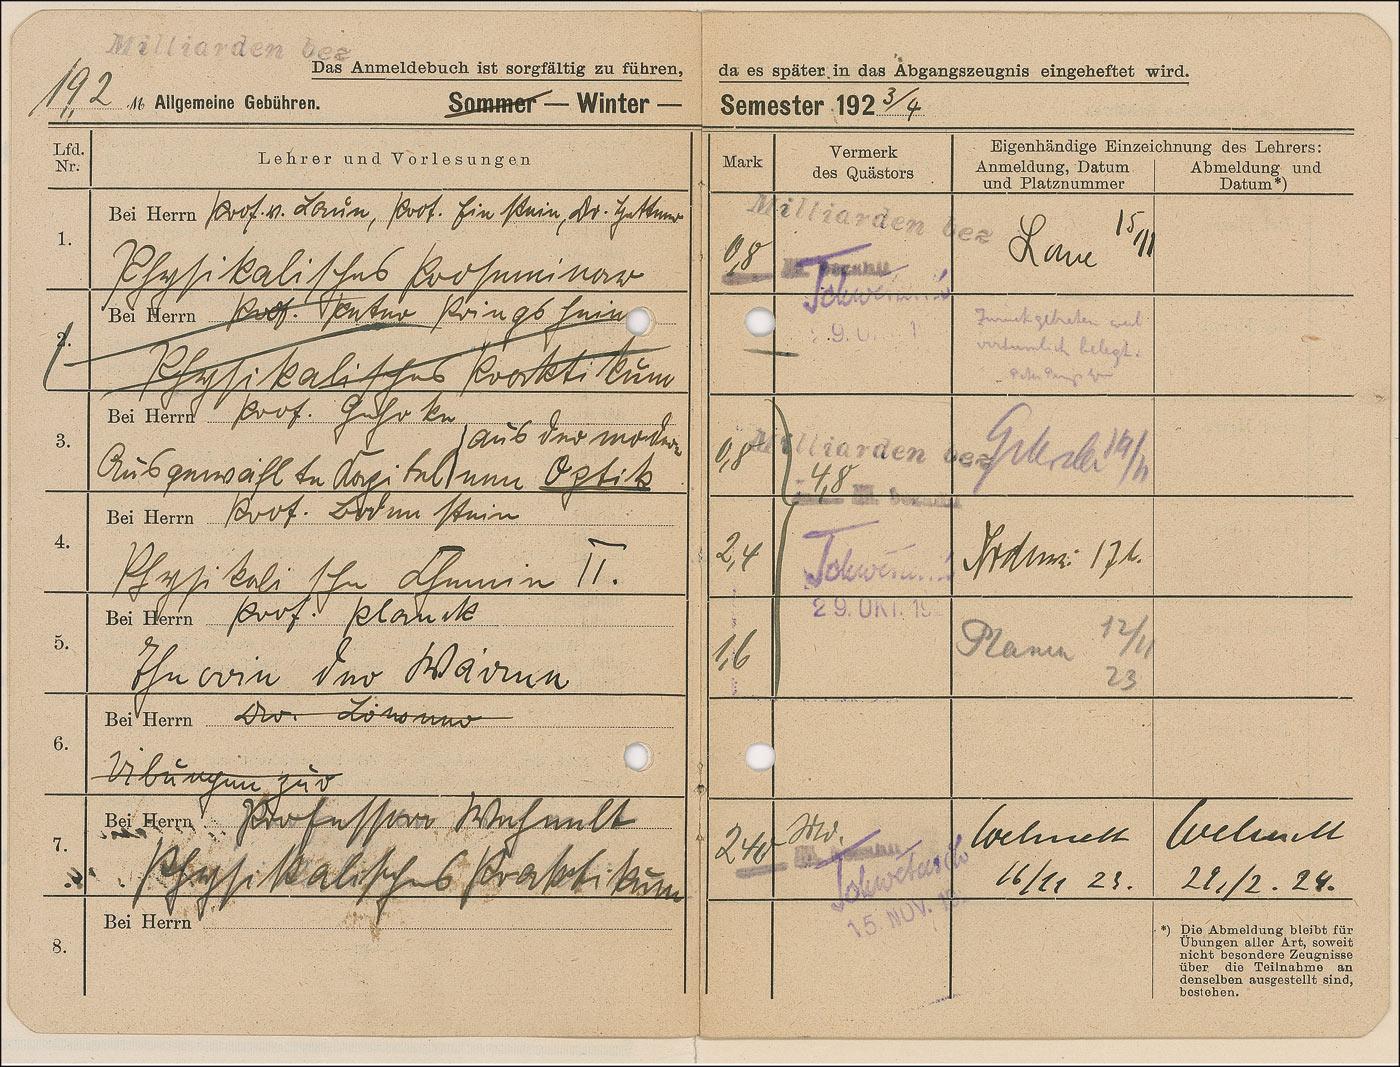 Milliarden bez
Das Anmeldebuch ist sorgfältig zu führen, da es später in das Abgangszeugnis eingeheftet wird.
19,2 M Allgemeine Gebühren. Sommer — Winter — Semester 192 3/4
Lfd. Nr.
Lehrer und Vorlesungen
Mark
Vermerk des Quästors
Eigenhändige Einzeichnung des Lehrers:
Anmeldung, Datum und Platznummer
Abmeldung und Datum*)
1.
Bei Herrn Prof. v. Laue, Prof. Einstein, Dr. Hettner
Physikalisches Proseminar
0,8
Milliarden bez
M. bezahlt
Laue 15/11
2.
Bei Herrn Prof. Peter Pringsheim
Physikalisches Praktikum
Zurückgetreten weil
versehentlich belegt.
3.
Bei Herrn Prof. Gehrke
Ausgewählte Kapitel aus der modernen Optik
0,8
Milliarden bez
4,8
M. bezahlt
Gehrcke 14/11
4.
Bei Herrn Prof. Bodenstein
Physikalische Chemie II.
2,4
29. OKT. 19
5.
Bei Herrn Prof. Planck
Theorie der Wärme
1,6
Planck 12/11
23
6.
Bei Herrn Dr.
Übungen zur
7.
Bei Herrn Professor Wehnelt
Physikalisches Praktikum
2,40
M. bezahlt
15. NOV. 19
Wehnelt
16/11 23.
Wehnelt
29./2. 24.
8.
Bei Herrn
*) Die Abmeldung bleibt für
Übungen aller Art, soweit
nicht besondere Zeugnisse
über die Teilnahme an
denselben ausgestellt sind,
bestehen.